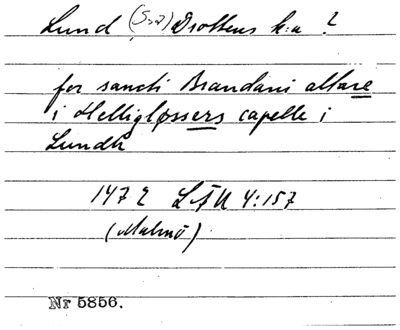 Lund (S:a) Drottens k:a ?
for sancti Brandani altare
i Helligløssers capelle i
Lundh
1472 LÄU 4:157
(Malmö)
Nr 5856.